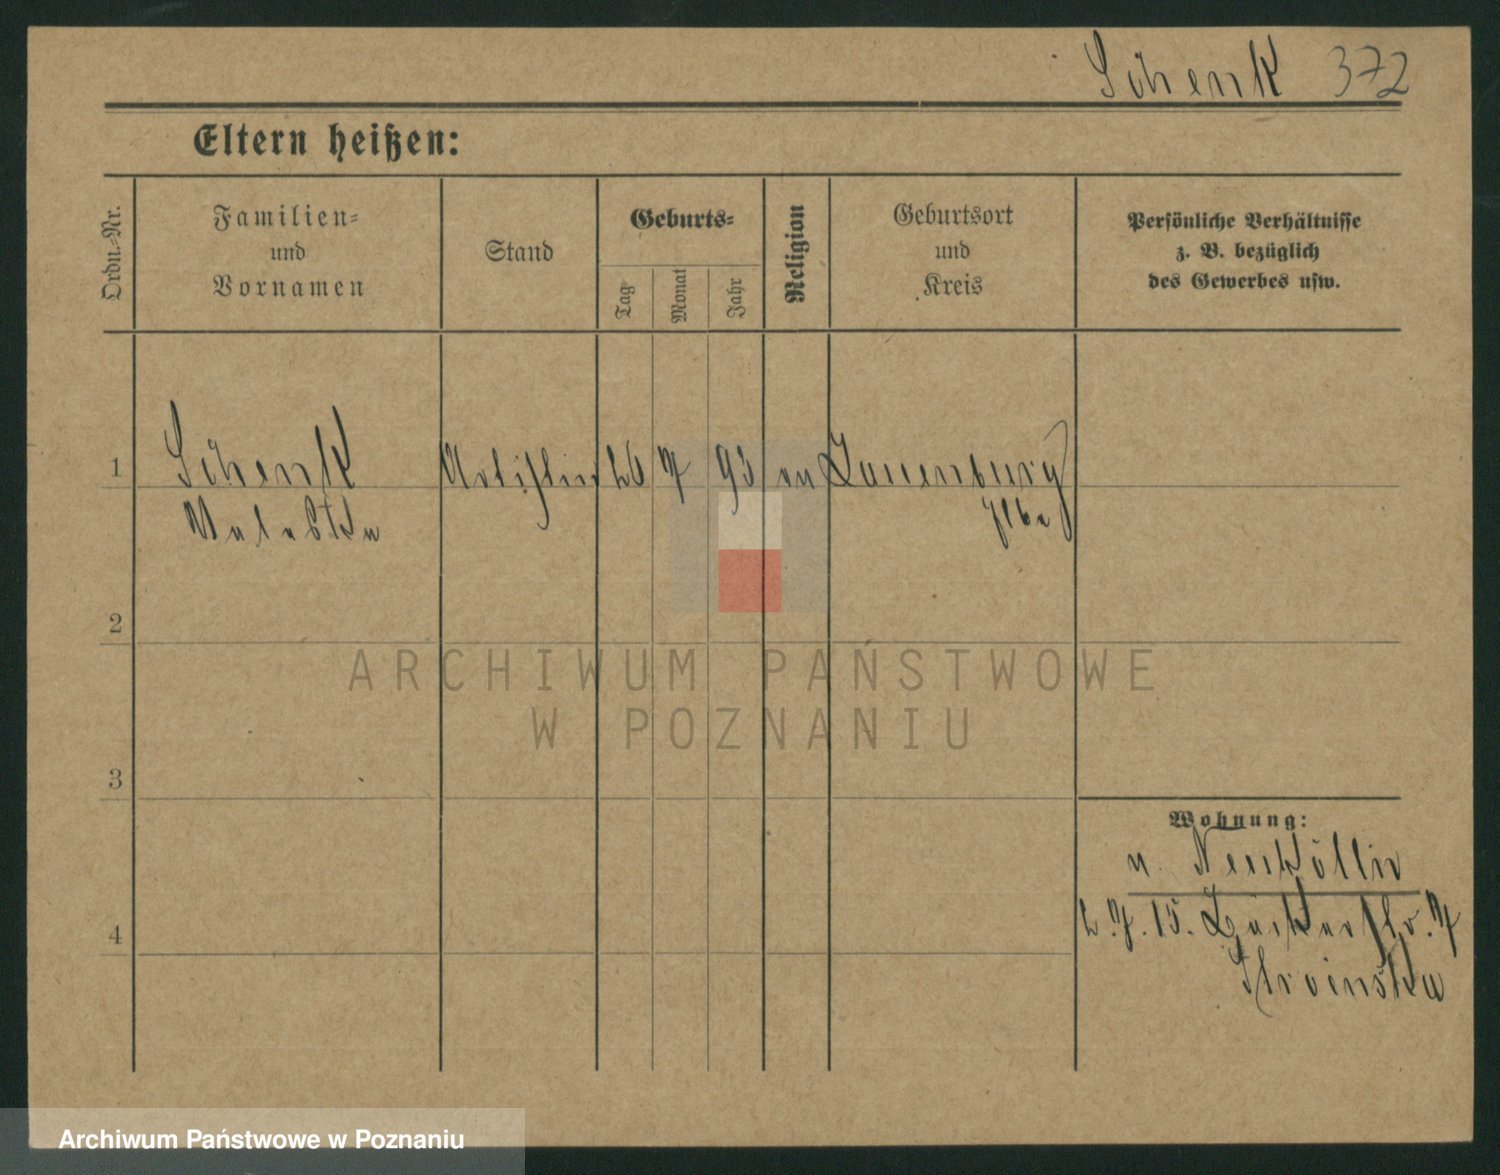 Schenk 372
Eltern heißen:
Ordn.-Nr.
Familien-
und
Vornamen
Stand
Geburts-
Tag
Monat
Jahr
Religion
Geburtsort
und
Kreis
Persönliche Verhältnisse
z. B. bezüglich
des Gewerbes usw.
1 Schenk Artistin 26 7 93 ev Lauenburg
Valeska Elbe
2
3
4
Wohnung:
n. Neukölln
2.7.15.
ARCHIWUM PAŃSTWOWE
W POZNANIU
Archiwum Państwowe w Poznaniu